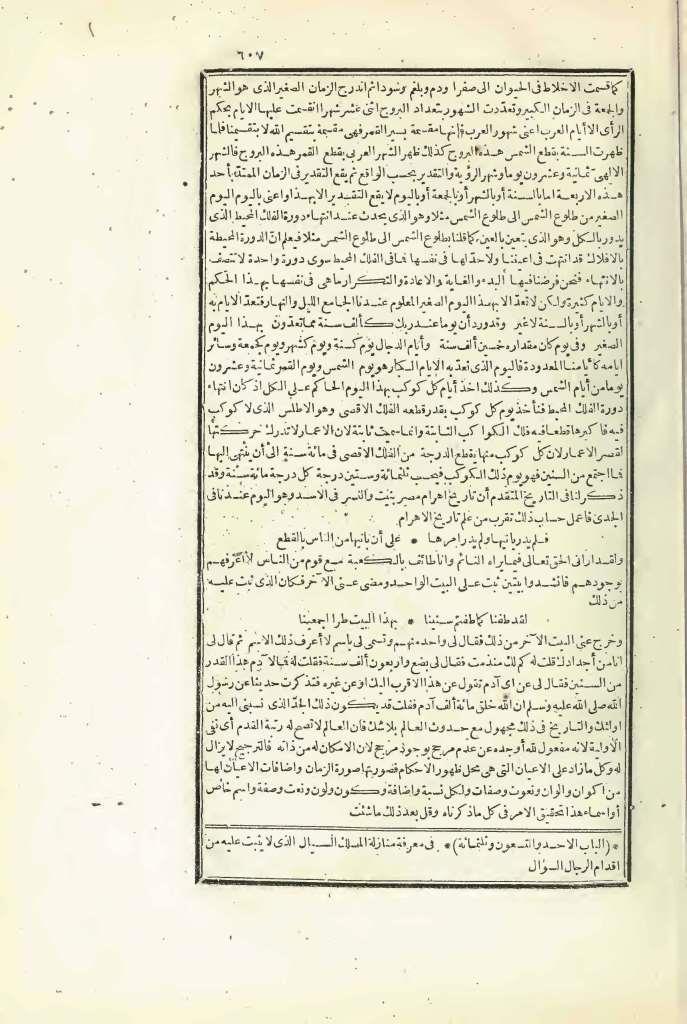 ٦٠٧
كما قسمت الاخلاط فى الحيوان الى صفرا ودم وبلغم وسودا ثم اندرج الزمان الصغير الذى هو الشهر
والجمعة فى الزمان الكبير وتعددت الشهور بتعداد البروج اثنى عشر شهرا انقسمت عليها الايام بحكم
الرأى الا أيام العرب اعنى شهور العرب فانها مقسمة بسير القمر فهى مقسمة بتقسيم الله لا بتقسيمنا فلما
ظهرت السنة بقطع الشمس هذه البروج كذلك ظهر الشهر العربى بقطع القمر هذه البروج فالشهر
الالهى ثمانية وعشرون يوما وشهر الرؤية والتقدير بحسب الواقع ثم يقع التقدير فى الزمان الممتد بأحد
هذه الاربعة اما بالسنة أو بالشهر أو بالجمعة أو باليوم لا يقع التقدير الا بهذا واعنى باليوم اليوم
الصغير من طلوع الشمس الى طلوع الشمس مثلا وهو الذى يحدث عند انتهاء دورة الفلك المحيط الذى
يدور بالكل وهو الذى يتعين بالعين كما قلنا بطلوع الشمس الى طلوع الشمس مثلا فيعلم ان الدورة المحيطة
بالافلاك قد انتهت فى اعيننا ولا حد لها فى نفسها فما فى الفلك المحيط سوى دورة واحدة لا تتصف
بالانتهاء فنحن فرضنا فيها البدء والغاية والاعادة والتكرار ما هى فى نفسها بهذا الحكم
والايام كثيرة ولكن لا تعد الا بهذا اليوم الصغير المعلوم عندنا الجامع الليل والنهار فتعد الايام به
أو بالشهر أو بالسنة لا غير وقد ورد أن يوما عند ربك كألف سنة مما تعدون بهذا اليوم
الصغير وفى يوم كان مقداره خمسين ألف سنة وأيام الدجال يوم كسنة ويوم كشهر ويوم كجمعة وسائر
ايامه كأيامنا المعدودة فاليوم الذى نعد به الايام الكبار هو يوم الشمس ويوم القمر ثمانية وعشرون
يوما من أيام الشمس وكذلك اخذ أيام كل كوكب بهذا اليوم الحاكم على الكل اذ كان انتهاء
دورة الفلك المحيط فنأخذ يوم كل كوكب بقدر قطعه الفلك الاقصى وهو الاطلس الذى لا كوكب
فيه فاكبرها قطعا فيه فلك الكواكب الثابتة وانما سميت ثابتة لان الاعمار لا تدرك حركتها
لقصر الاعمار لان كل كوكب منها يقطع الدرجة من الفلك الاقصى فى مائة سنة الى أن ينتهى اليها
فما اجتمع من السنين فهو يوم ذلك الكوكب فيحسب ثلثمائة وستين درجة كل درجة مائة سنة وقد
ذكر لنا فى التاريخ المتقدم أن تاريخ اهرام مصر بنيت والنسر فى الاسد وهو اليوم عندنا فى
الجدى فاعمل حساب ذلك تقرب من علم تاريخ الاهرام
فلم يدر بانيها ولم يدر امرها * على أن بانيها من الناس بالقطع
ولقد ارانى الحق تعالى فيما يراه النائم وانا طائف بالكعبة مع قوم من الناس لا اعرفهم
بوجوههم فانشدوا بيتين ثبت على البيت الواحد ومضى عنى الآخر فكان الذى ثبت عليه
من ذلك
لقد طفنا كما طفتم سنينا * بهذا البيت طرا اجمعينا
وخرج عنى البيت الآخر من ذلك فقال لى واحد منهم وتسمى لى باسم لا أعرف ذلك الاسم ثم قال لى
انا من أجدادك قلت له كم لك منذ مت فقال لى بضع واربعون ألف سنة فقلت له فما لآدم هذا القدر
من السنين فقال لى عن اى آدم تقول عن هذا الاقرب اليك او عن غيره فتذكرت حديثا عن رسول
الله صلى الله عليه وسلم ان الله خلق مائة ألف آدم فقلت قد يكون ذلك الجد الذى نسبنى اليه من
اولئك والتاريخ فى ذلك مجهول مع حدوث العالم بلا شك فان العالم لا تصح له رتبة القدم أى نفى
الاولية لانه مفعول لله أوجده عن عدم مرجح بوجود مرجح لان الامكان له من ذاته فالترجيح لا يزال
له وكل ما زاد على الاعيان التى هى محل ظهور الاحكام فصورتها صورة الزمان واضافات الاعيان لها
من اكوان والوان ونعوت وصفات ولكل نسبة واضافة وكون ولون ونعت وصفة واسم خاص
أو اسماء هذا تحقيق الامر فى كل ما ذكرناه وقل بعد ذلك ما شئت
* (الباب الاحد والتسعون وثلثمائة) * فى معرفة منازلة المسلك السيال الذى لا يثبت عليه من
اقدام الرجال السؤال